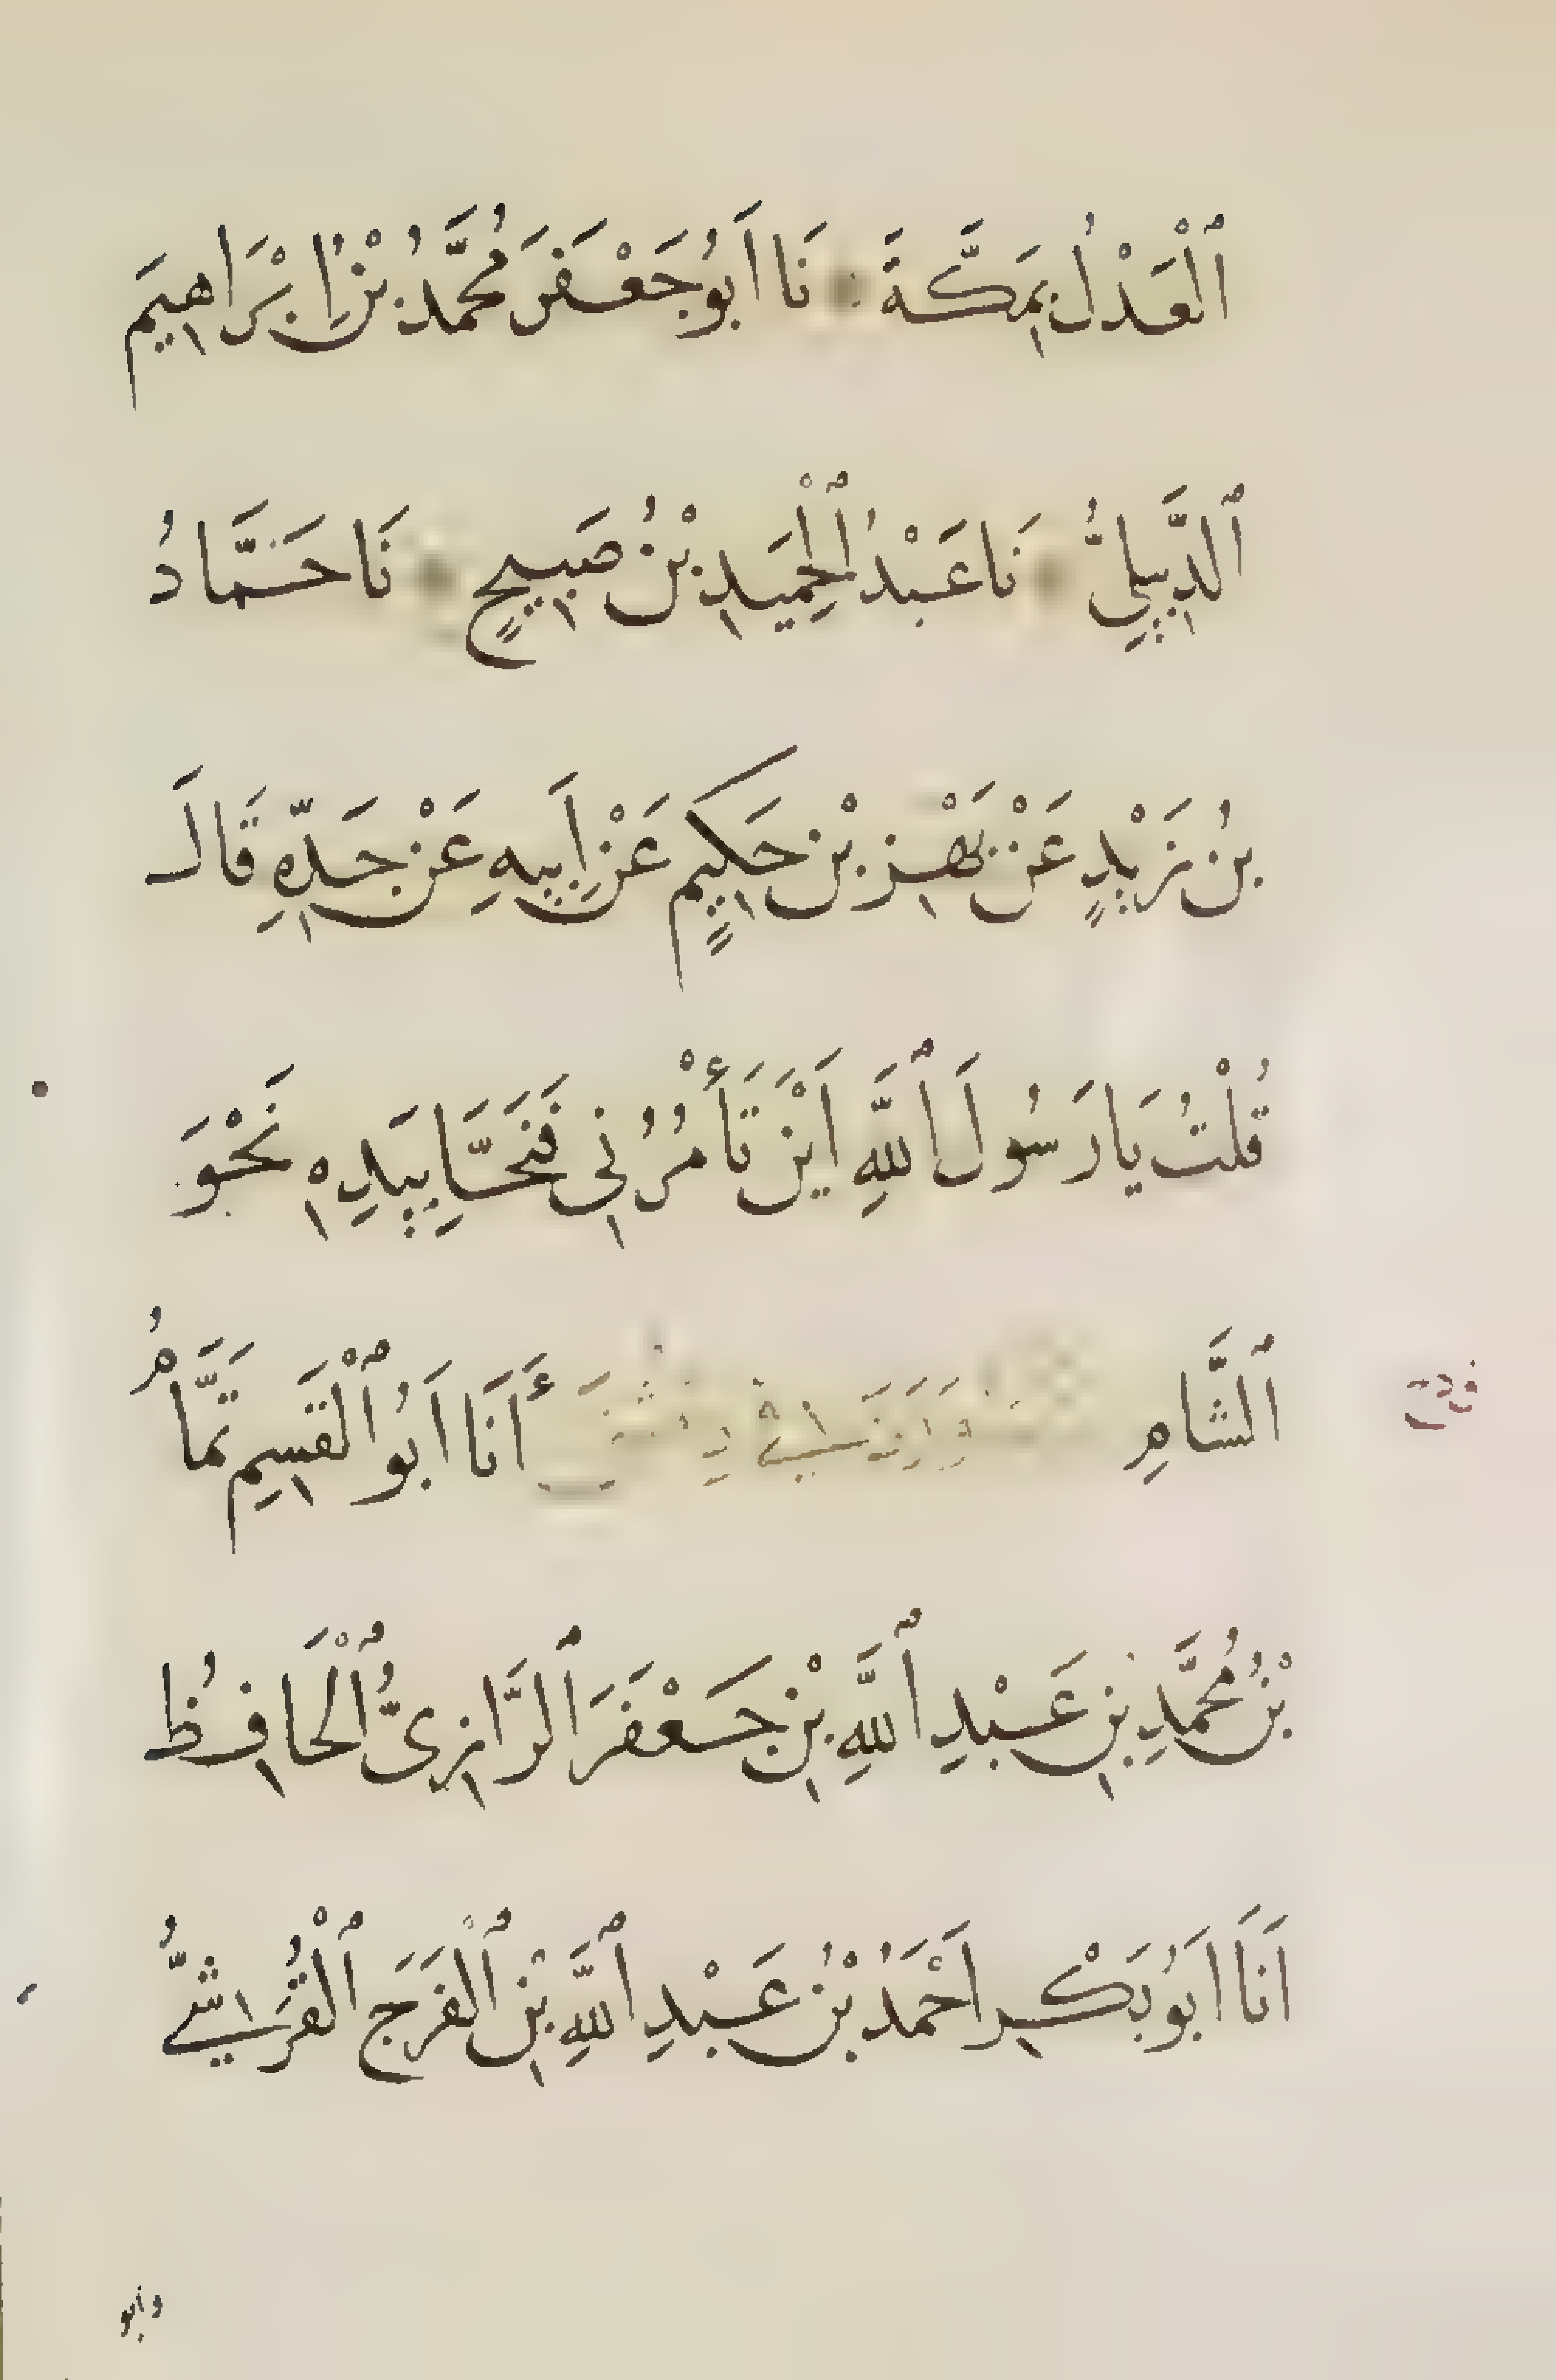 ٱلْعَدْلُ بِمَكَّةَ نَا اَبُو جَعْفَرَ مُحَمَّدُ بْنُ اِبْرَاهِيمَ
ٱلدَّيْبِلِيُّ نَا عَبْدُ ٱلْحَمِيدِ بْنُ صَبِيحٍ نَا حَمَّادُ
بنُ زَيْدٍ عَنْ بَهْزِ بْنِ حَكِيمٍ عَنْ اَبِيهِ عَنْ جَدِّهِ قَالَ
قُلْتُ يَا رَسُولَ ٱللَّهِ اَيْنَ تَأْمُرُنِي فَنَحَّا بِيَدِهِ نَحْوَ
ٱلشَّامِ أَنَا اَبُو ٱلْقَسِمِ تَمَّامُ
بْنُ مُحَمَّدِ بنِ عَبْدِ ٱللَّهِ بْنِ جَعْفَرَ ٱلرَّازِيُّ ٱلْحَافِظُ
اَنَا اَبُو بَكْرٍ اَحْمَدُ بْنُ عَبْدِ ٱللَّهِ بْنِ ٱلْفَرَجِ ٱلْقُرَشِيُّ
وابو